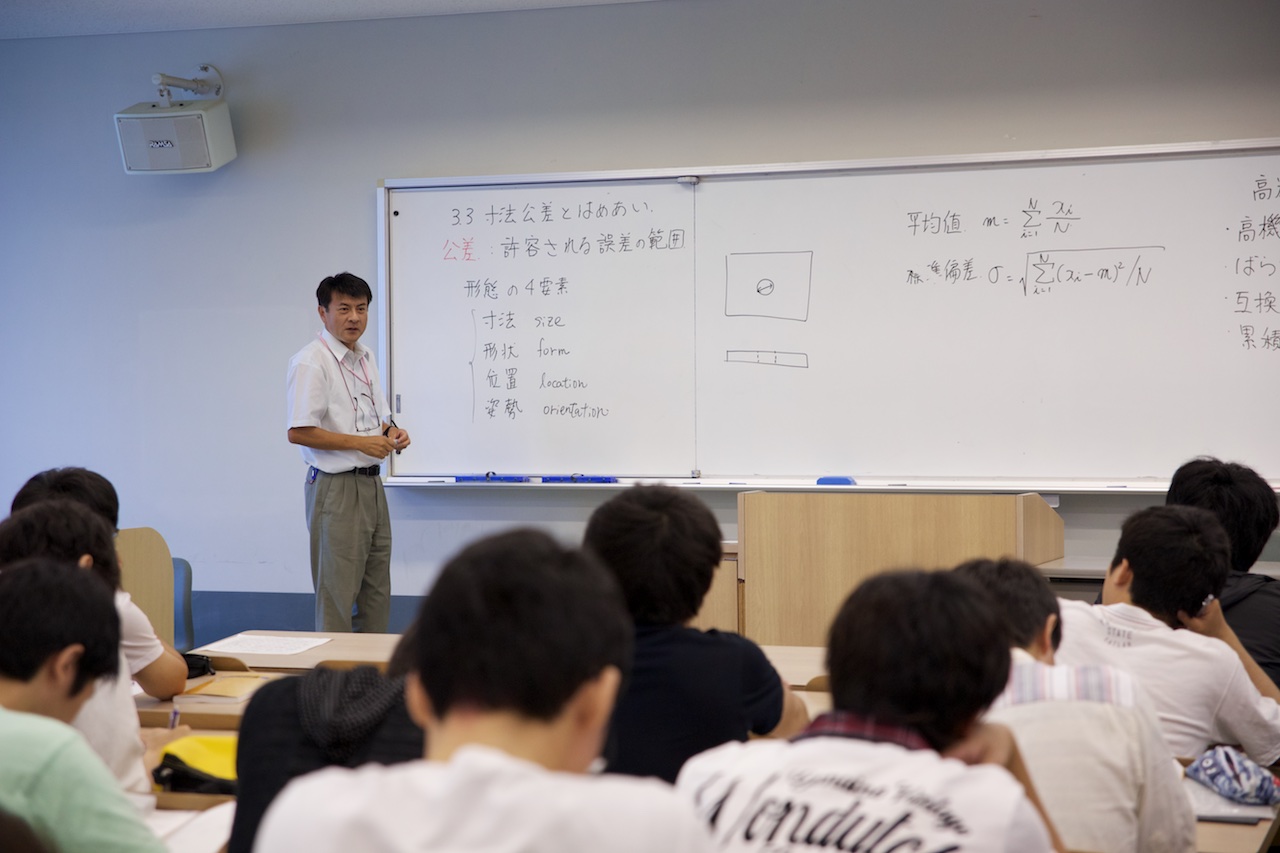 3.3 寸法公差とはめあい.
公差 : 許容される誤差の範囲
形態の4要素
寸法 size
形状 form
位置 location
姿勢 orientation
平均値 m = Σ_{i=1}^{N} x_i/N
標準偏差 σ = √(Σ_{i=1}^{N} (x_i - m)²/N)
高
・高機
・ばら
・互換
・累積
STATE